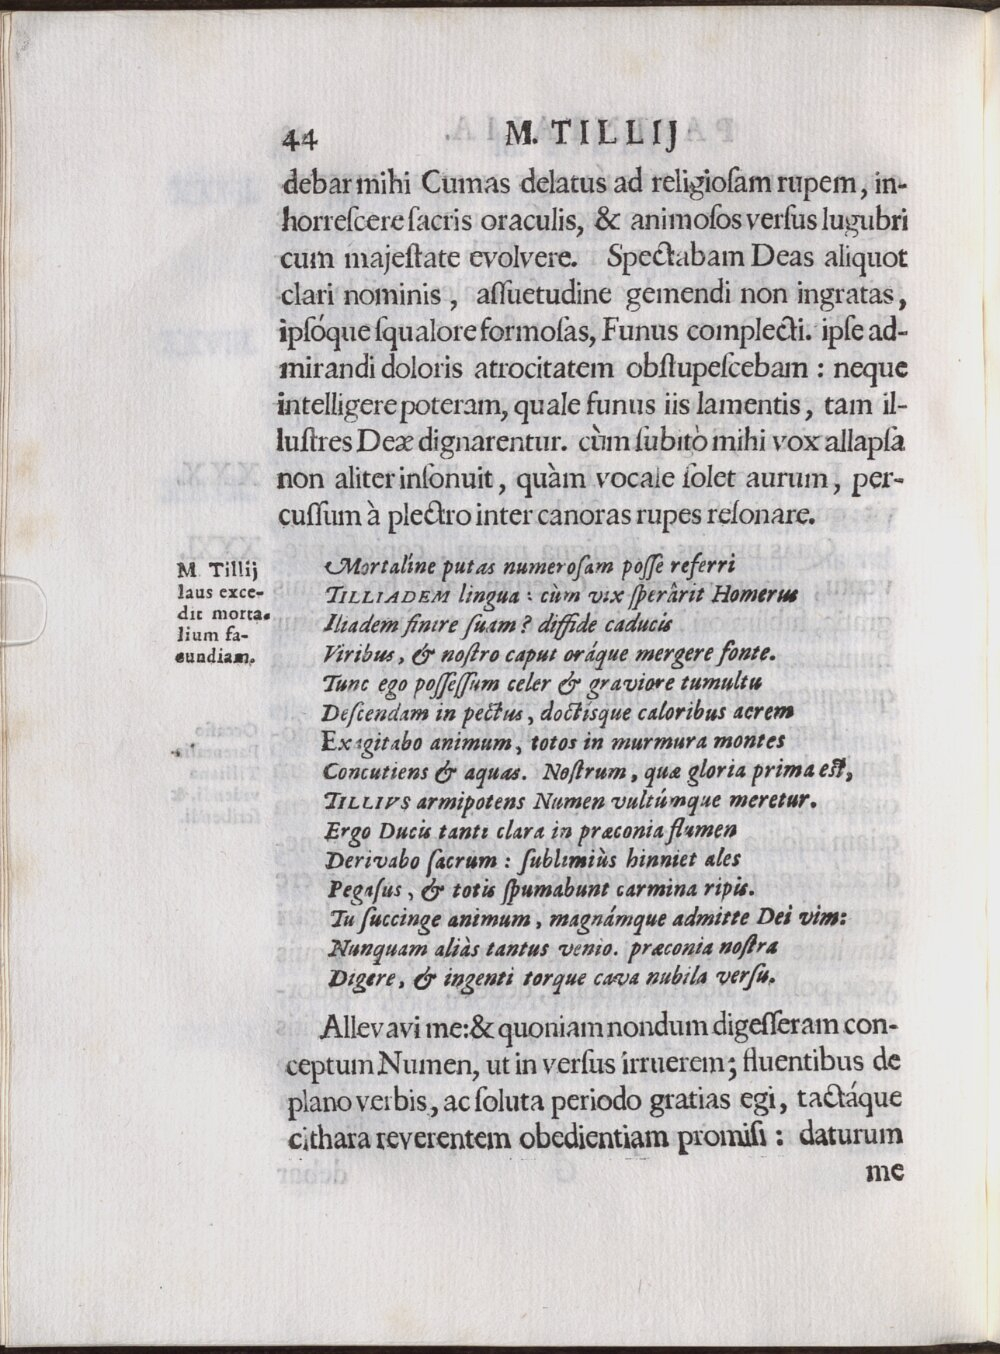 44 M. TILLIJ
debar mihi Cumas delatus ad religioſam rupem, in-
horreſcere ſacris oraculis, & animoſos verſus lugubri
cum majeſtate evolvere. Spectabam Deas aliquot
clari nominis, aſſuetudine gemendi non ingratas,
ipſóque ſqualore formoſas, Funus complecti. ipſe ad-
mirandi doloris atrocitatem obſtupeſcebam : neque
intelligere poteram, quale funus iis lamentis, tam il-
luſtres Deæ dignarentur. cùm ſubitò mihi vox allapſa
non aliter inſonuit, quàm vocale ſolet aurum, per-
cuſſum à plectro inter canoras rupes reſonare.
M. Tillij
laus exce-
dit morta-
lium fa-
cundiam.
Mortaline putas numeroſam poſſe referri
TILLIADEM lingua : cùm vix ſperârit Homerus
Iliadem finire ſuam? diffide caducis
Viribus, & noſtro caput oráque mergere fonte.
Tunc ego poſſeſſum celer & graviore tumultu
Deſcendam in pectus, doctisque caloribus acrem
Exagitabo animum, totos in murmura montes
Concutiens & aquas. Noſtrum, quæ gloria prima eſt,
TILLIVS armipotens Numen vultúmque meretur.
Ergo Ducis tanti clara in præconia flumen
Derivabo ſacrum : ſublimiùs hinniet ales
Pegaſus, & totis ſpumabunt carmina ripis.
Tu ſuccinge animum, magnámque admitte Dei vim:
Nunquam aliàs tantus venio. præconia noſtra
Digere, & ingenti torque cava nubila verſu.
Allevavi me:& quoniam nondum digeſſeram con-
ceptum Numen, ut in verſus irruerem; fluentibus de
plano verbis, ac ſoluta periodo gratias egi, tactáque
cithara reverentem obedientiam promiſi : daturum
me